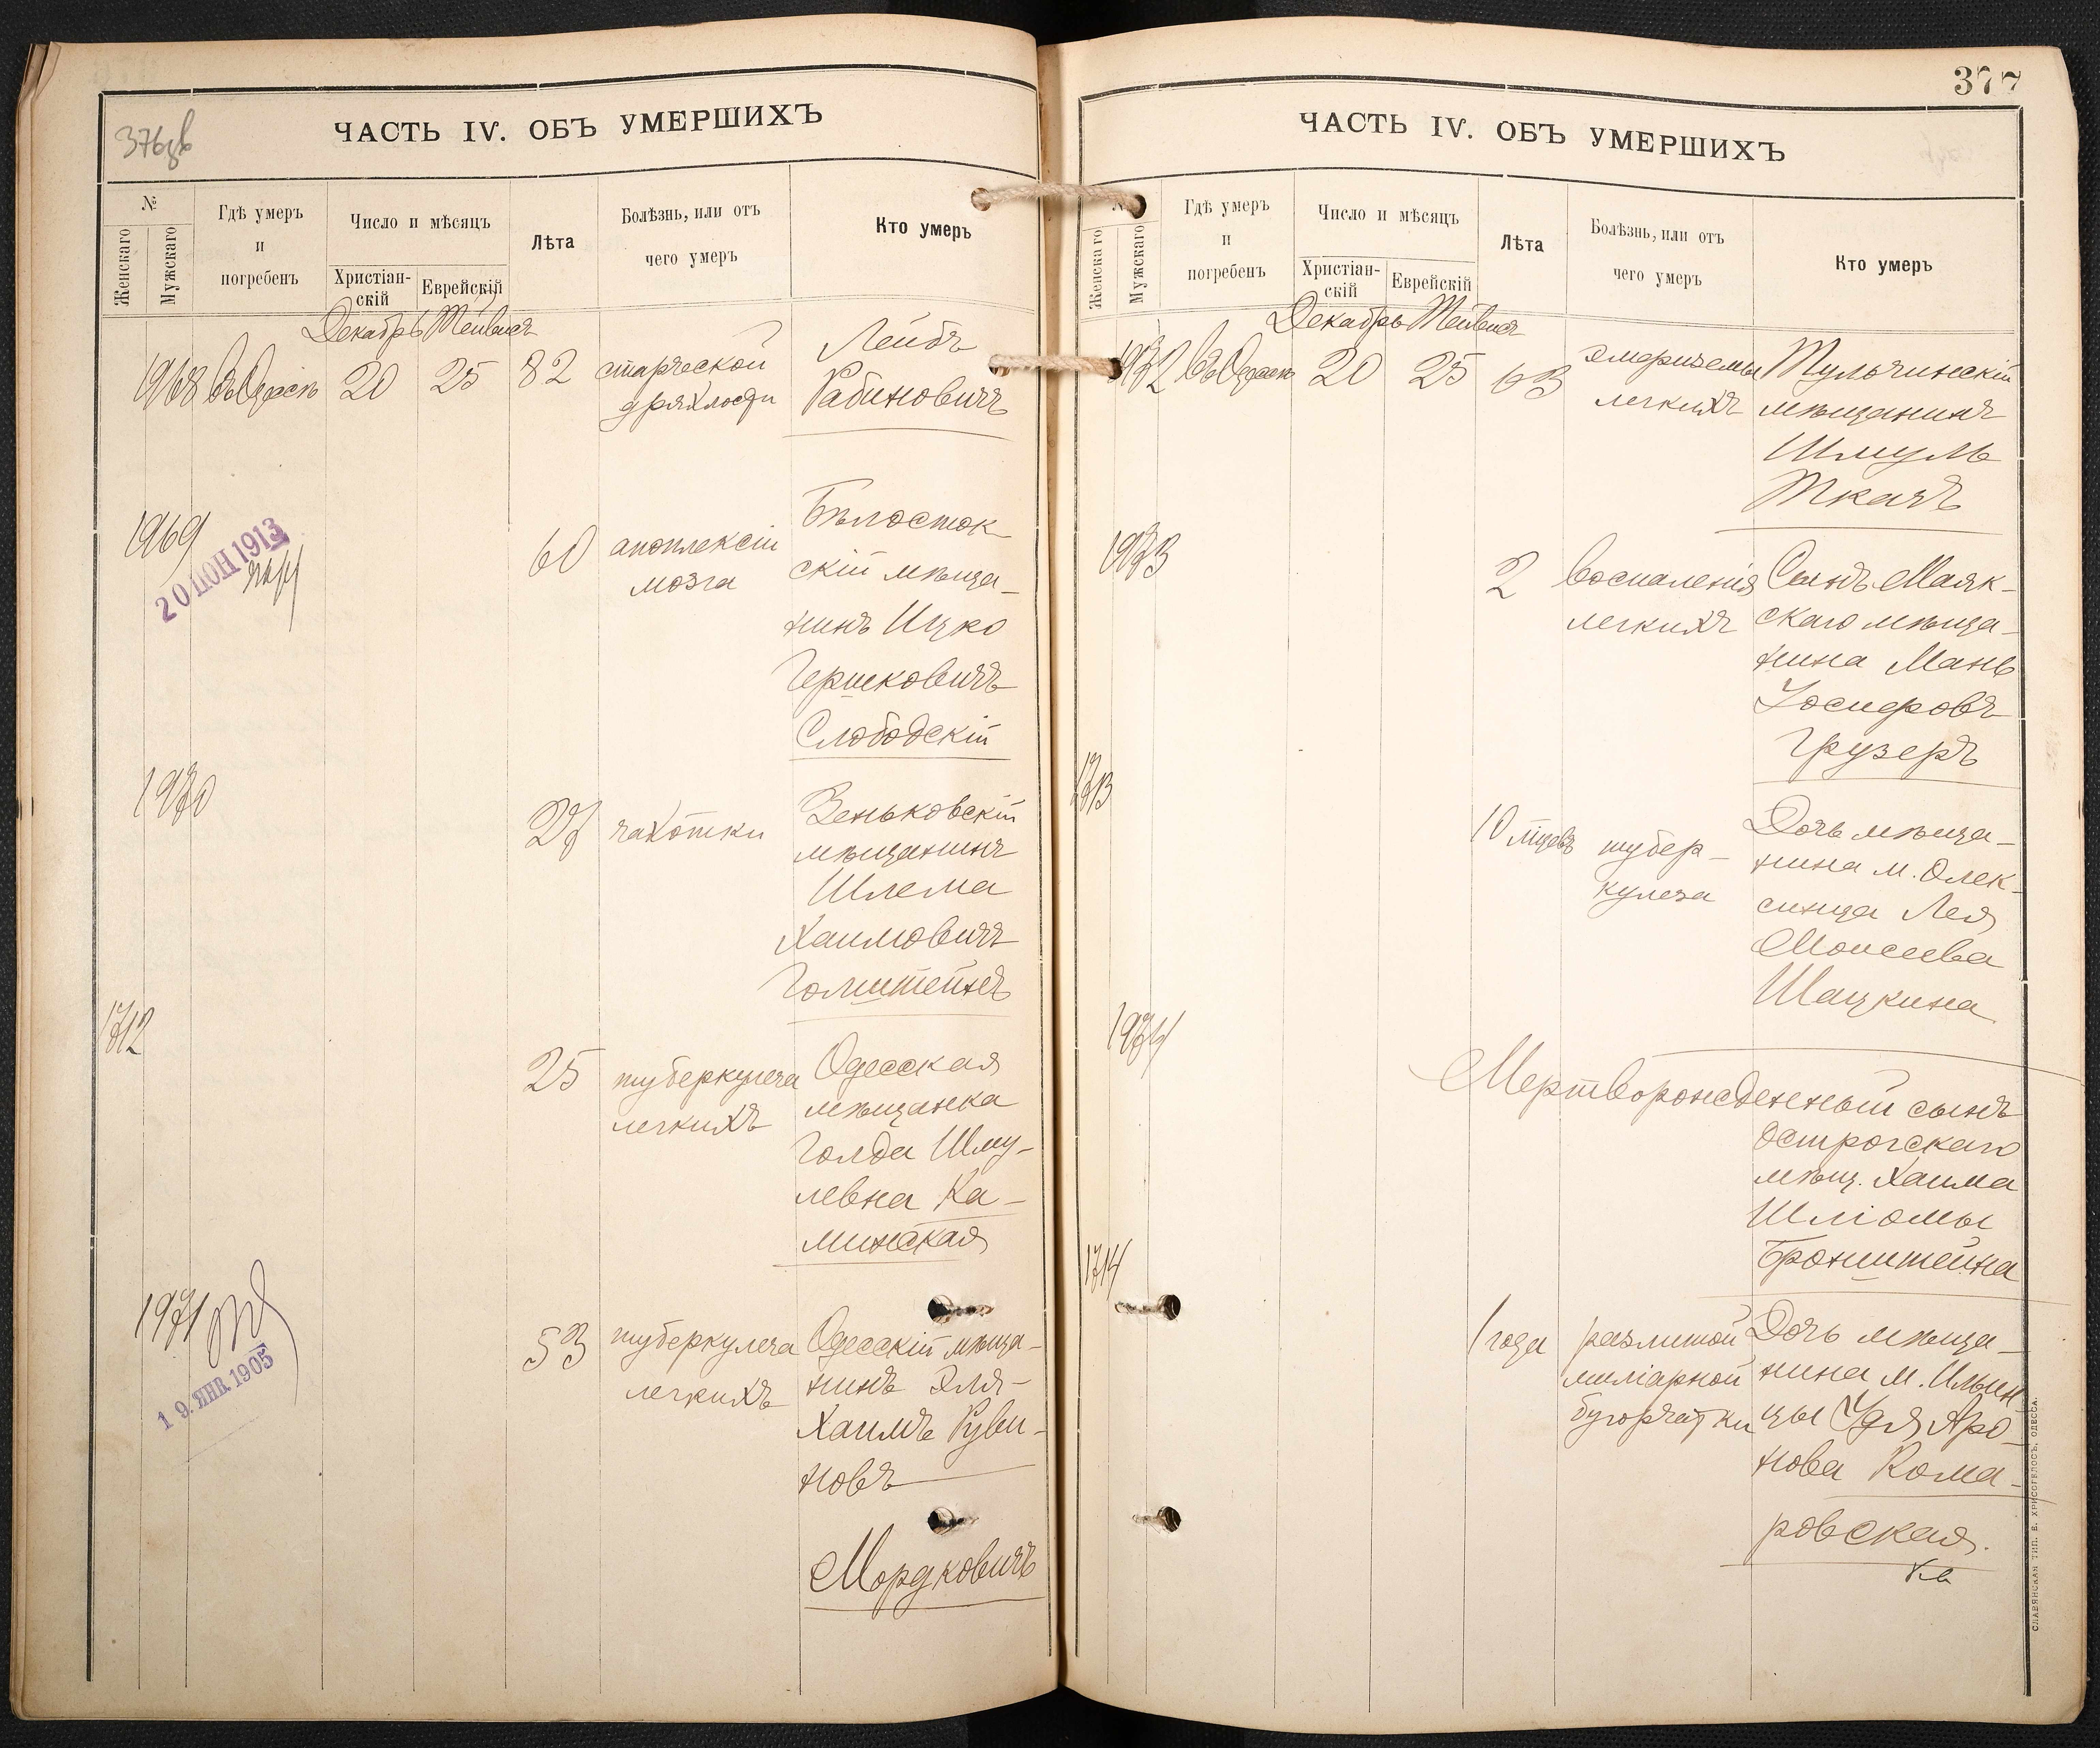 ЧАСТЬ IV. ОБЪ УМЕРШИХЪ
№
Женскаго
Мужскаго
Гдѣ умеръ
и
погребенъ
Число и мѣсяцъ
Христіан-
скій
Еврейскій
Лѣта
Болѣзнь, или отъ
чего умеръ
Кто умеръ
Декабрь Тейвисъ
1968 въ Одессѣ 20 25 82
старческой
дряхлости
Лейбъ
Рабиновичъ
1969
20 ІЮН 1913
60
апоплексіи
мозга
Бѣлосток-
скій мѣща-
нинъ Ицко
Гершковичъ
Слободскій
1970
27 чахотки
Зеньковскій
мѣщанинъ
Шлема
Хаимовичъ
Голштейнъ
1712
25
туберкулеза
легкихъ
Одесская
мѣщанка
Голда Шму-
левна Ка-
минская
1971
19. ЯНВ. 1905
53
туберкулеза
легкихъ
Одесскій мѣща-
нинъ Эля-
Хаимъ Руви-
новъ
Мордковичъ
377
ЧАСТЬ IV. ОБЪ УМЕРШИХЪ
№
Женскаго
Мужскаго
Гдѣ умеръ
и
погребенъ
Число и мѣсяцъ
Христіан-
скій
Еврейскій
Лѣта
Болѣзнь, или отъ
чего умеръ
Кто умеръ
Декабрь Тейвисъ
1972 въ Одессѣ 20 25 63
эмфиземы
легкихъ
Тульчинскій
мѣщанинъ
Шмуль
Ткачъ
1973
2
воспаленія
легкихъ
Сынъ Маяк-
скаго мѣща-
нина Мань
Іосифовъ
Грузеръ
1713
10 мѣсяцевъ
тубер-
кулеза
Дочь мѣща-
нина м. Олек-
синца Лея
Моисеева
Шацкина
1974
Мертворожденный сынъ
Острогскаго
мѣщ. Хаима
Шліомы
Бронштейна
1714
1 года
разлитой
миліарной
бугорчатки
Дочь мѣща-
нина м. Ильин-
цы Удя Аро-
нова Кома-
ровская.
СЛАВЯНСКАЯ ТИП. Е. ХРИСОГЕЛОСЪ, ОДЕССА.